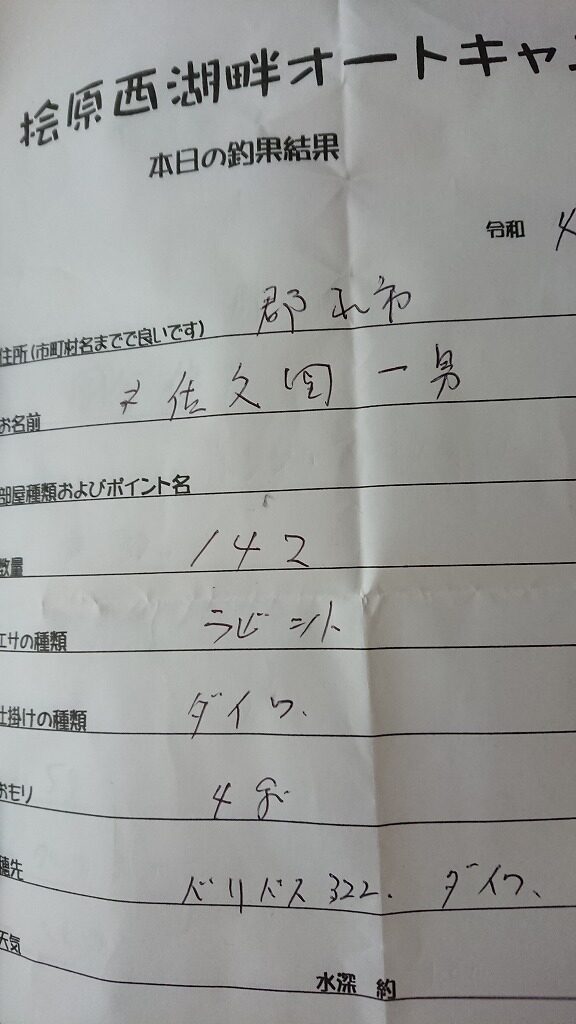 桧原西湖畔オートキャ
本日の釣果結果
令和 4
住所(市町村名までで良いです) 郡山市
お名前 佐久間一男
部屋種類およびポイント名
数量 142
エサの種類 ラビット
仕掛けの種類 ダイワ、
おもり 4g
穂先 バリバス322. ダイワ、
天気
水深 約